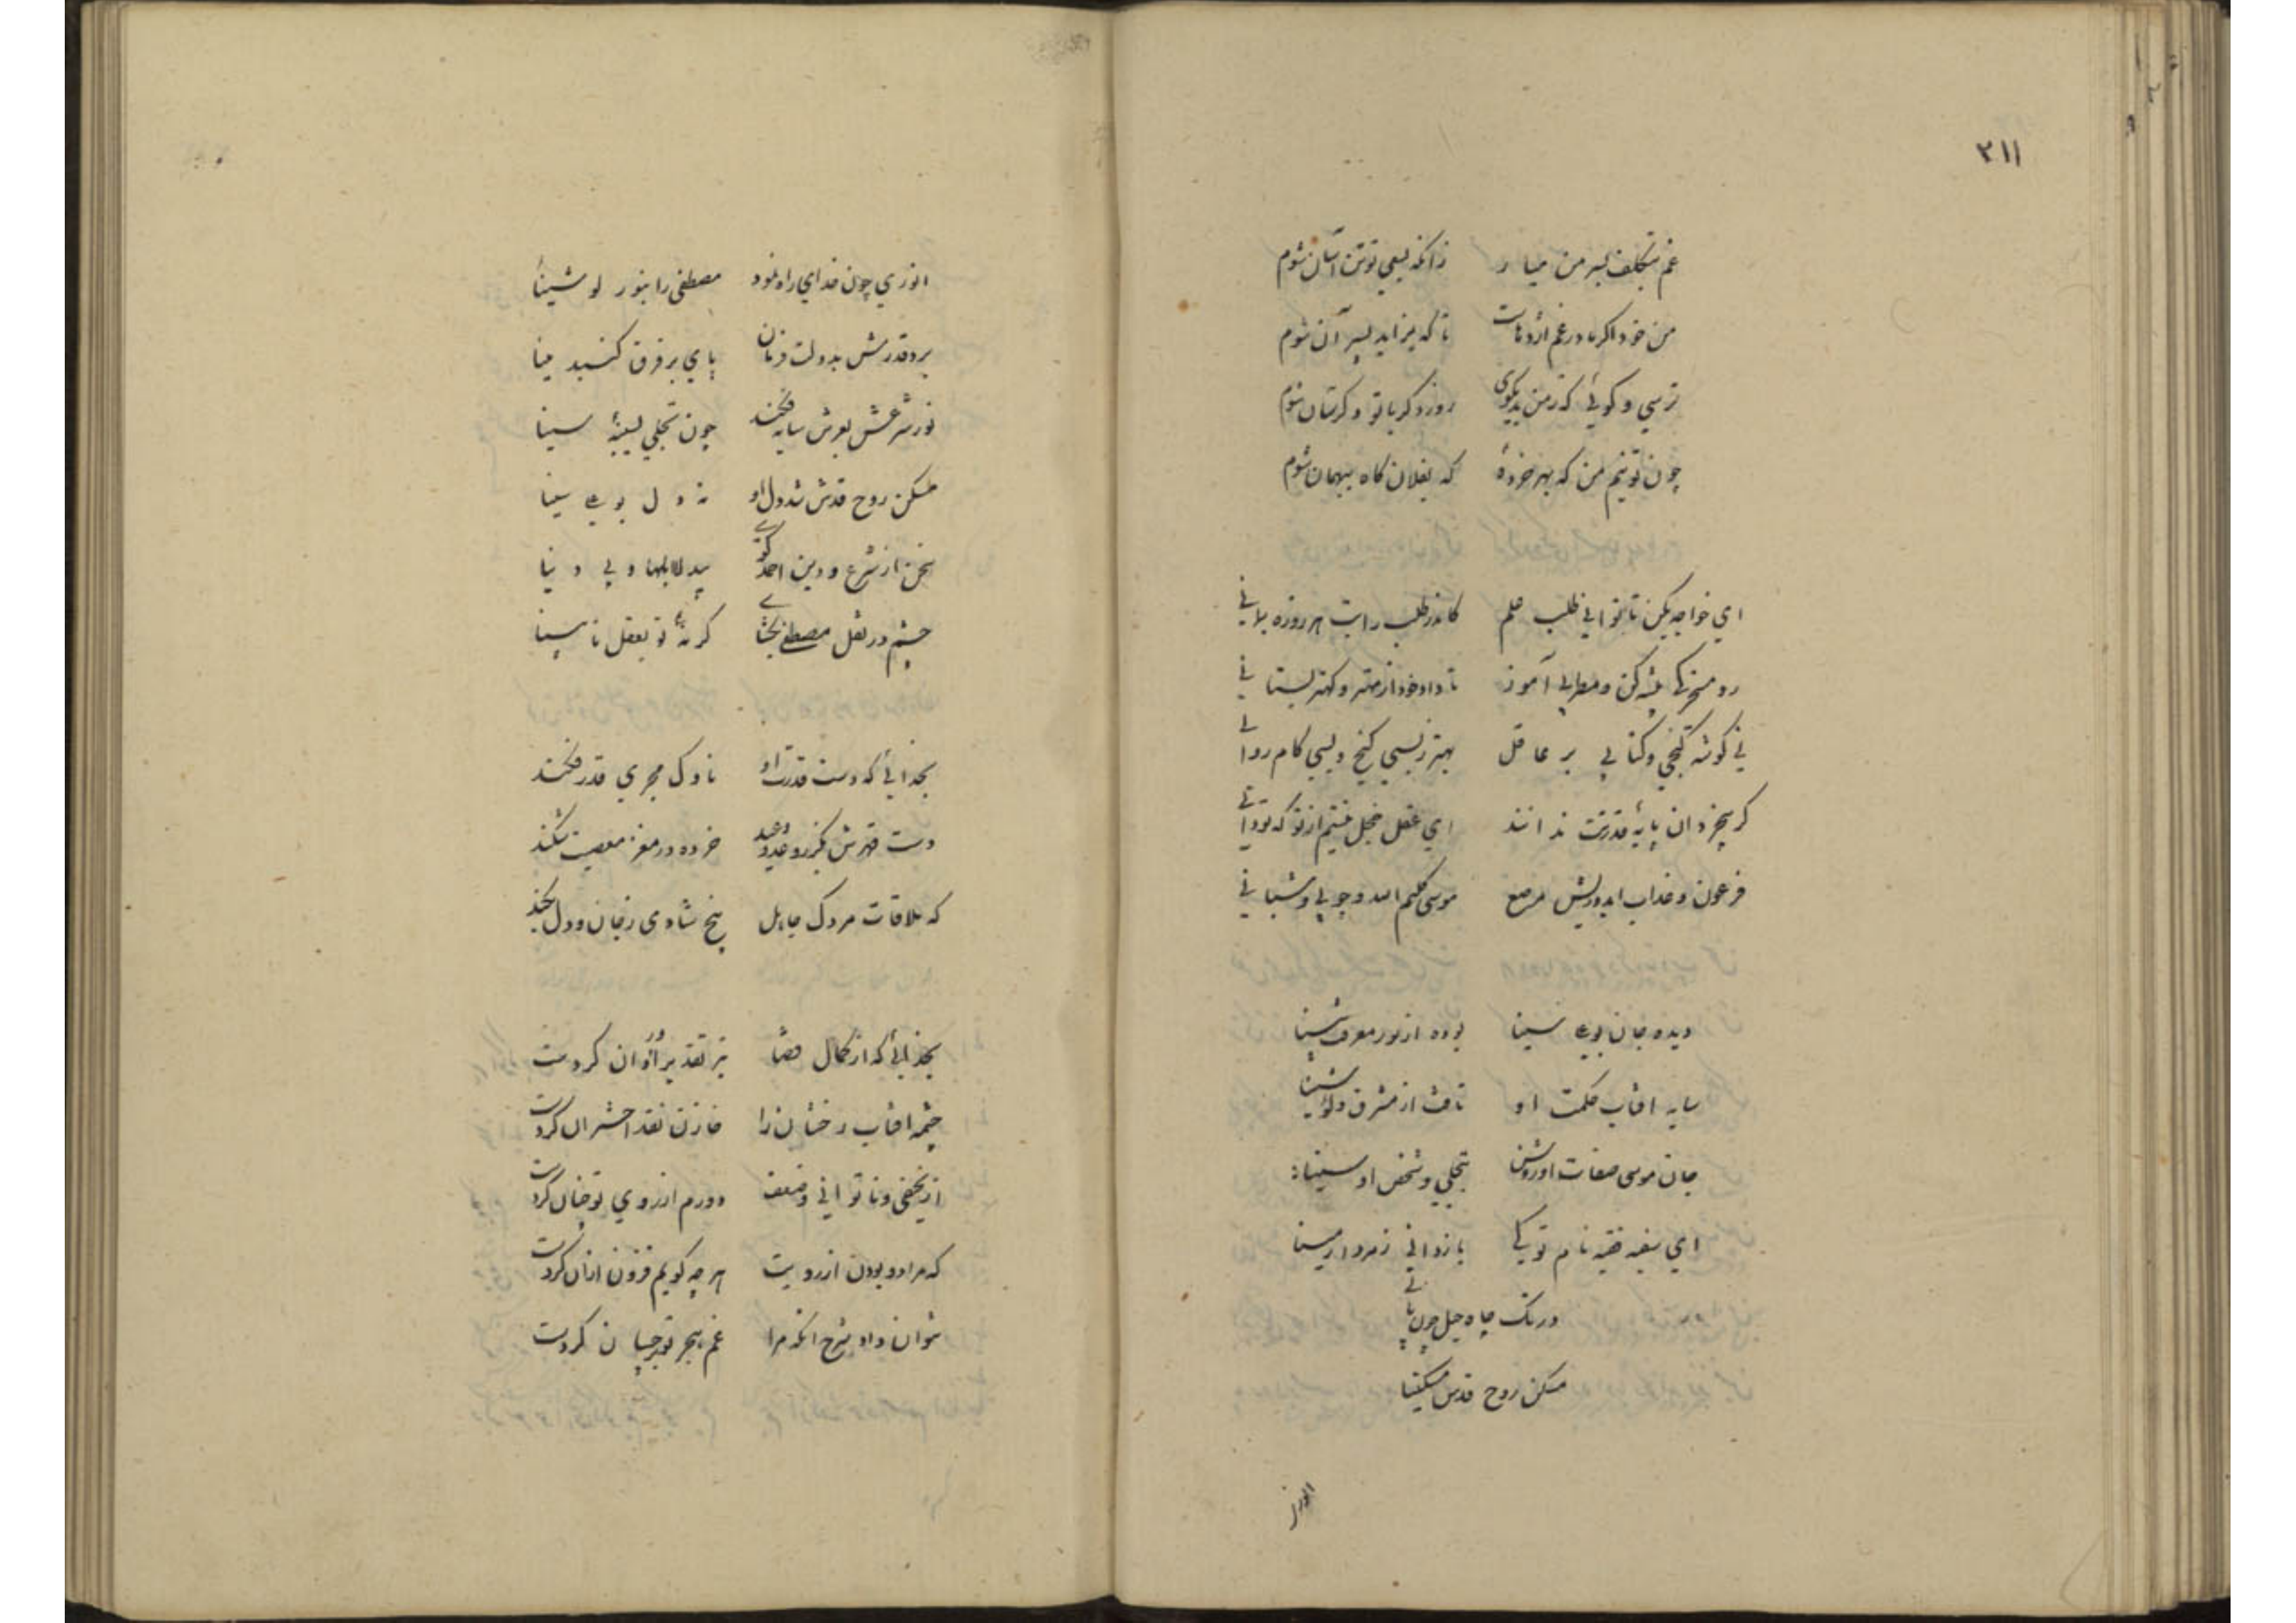 ٣١١
غم بتکلف بسر من میا ر زانکه بسعی تو تن آسان شوم
من خود اکر مادر غم اژدهاست تا که نزاید بسر آن شوم
ترسی و کوئی که ز من بد مکوی روز دکر با تو دکرسان شوم
چون تو نیم من که بهر خردهٔ که بفلان کاه ببهمان شوم
ای خواجه مکن تا بتوانی طلب علم کاندر طلب راتب هر روزه بمانی
رو مسخرکی پیشه کن و مطربی آموز تا داد خود از مهتر و کهتر بستانی
نی کوشهٔ کنجی و کتابی بر عاقل بهتر ز بسی کنج و بسی کام روائی
کر بیخردان پایهٔ قدرت ندانند ای عقل خجل نیستم از تو که تو دانی
فرعون و عذاب ابد و ریش مرصع موسی کلیم الله و چوبی و شبانی
دیده جان بوعلی سینا بوده از نور معرفت بینا
سایه افتاب حکمت او تافت از مشرق ولوشینا
جان موسی صفات او روشن بتجلی و شخص او سینا
ای سفیه فقیه نام تو کی باز دانی زمرد از مینا
در تک چاه جهل چون پائی
مسکن روح قدس مسکینا
انوری
انوری چون خدای راه نمود مصطفی را بنور لوشینا
برد قدرش بدولت فرمان پای بر فرق کنبد مینا
نور شرعش بعرش سایه فکند چون تجلی بسینهٔ سینا
مسکن روح قدس شد دل او نه دل بوعلی سینا
سخن از شرع و دین احمد کوی بیدلا ابلها و بی دینا
چشم در نقل مصطفی بکشای کر نهٔ تو بعقل نابینا
بخدائی که دست قدرت او ناوک مجری قدر فکند
دست قهرش بکرز وعد و وعید خرده در مغز معصیت شکند
که ملاقات مردک جاهل بیخ شادی ز جان و دل بکند
بخدائی که از کمال قضا تیر تقدیر را روان کردست
چشمه افتاب رخشان را خازن نقد اختران کردست
از نحیفی و ناتوانی و ضعف دورم از روی تو چنان کردست
که مرا دور بودن از رویت هر چه کویم فزون از آن کردست
نتوان داد شرح آنکه مرا غم هجر تو برچسان کردست